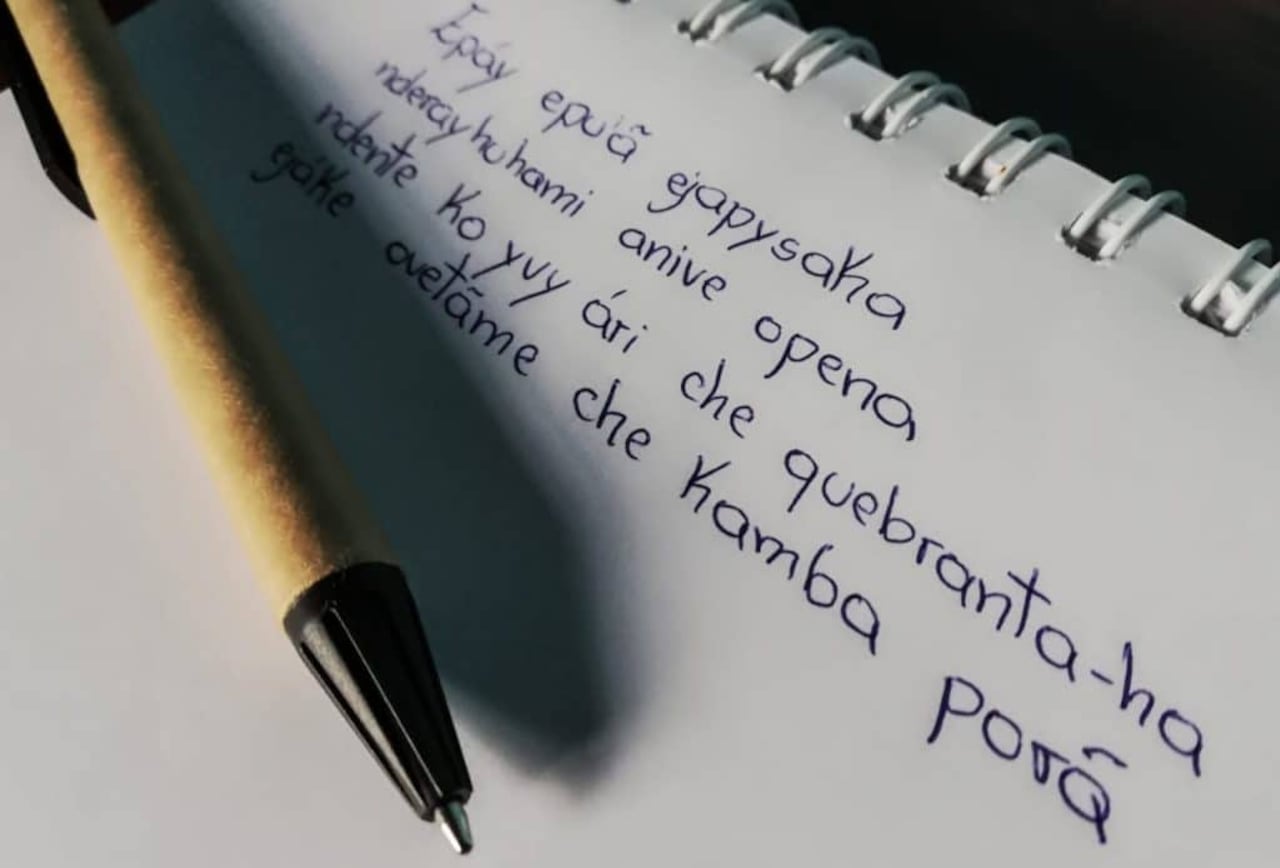 Epáy epu'ã ejapysaka
nderayhuhami anive opena
ndente ko yvy ári che quebranta-ha
ejáke ovetãme che kamba porã